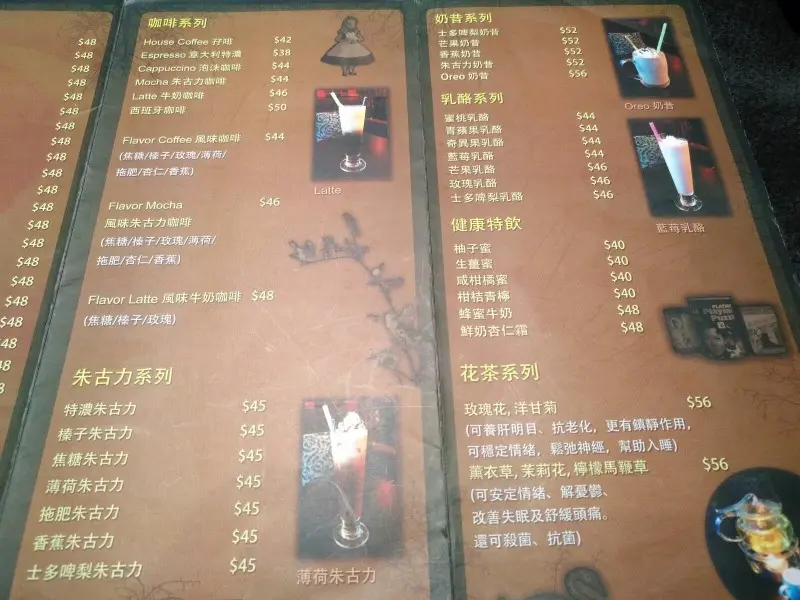 $48
$48
$48
$48
$48
$48
$48
$48
$48
$48
$48
$48
$48
$48
$48
$48
咖啡系列
House Coffee 孖啡 $42
Espresso 意大利特濃 $38
Cappuccino 泡沫咖啡 $44
Mocha 朱古力咖啡 $44
Latte 牛奶咖啡 $46
西班牙咖啡 $50
Flavor Coffee 風味咖啡 $44
(焦糖/榛子/玫瑰/薄荷/
拖肥/杏仁/香蕉)
Latte
Flavor Mocha $46
風味朱古力咖啡
(焦糖/榛子/玫瑰/薄荷/
拖肥/杏仁/香蕉)
Flavor Latte 風味牛奶咖啡 $48
(焦糖/榛子/玫瑰)
朱古力系列
特濃朱古力 $45
榛子朱古力 $45
焦糖朱古力 $45
薄荷朱古力 $45
拖肥朱古力 $45
香蕉朱古力 $45
士多啤梨朱古力 $45
薄荷朱古力
奶昔系列
士多啤梨奶昔 $52
芒果奶昔 $52
香蕉奶昔 $52
朱古力奶昔 $52
Oreo 奶昔 $56
Oreo 奶昔
乳酪系列
蜜桃乳酪 $44
青蘋果乳酪 $44
奇異果乳酪 $44
藍莓乳酪 $44
芒果乳酪 $46
玫瑰乳酪 $46
士多啤梨乳酪 $46
藍莓乳酪
健康特飲
柚子蜜 $40
生薑蜜 $40
咸柑橘蜜 $40
柑桔青檸 $40
蜂蜜牛奶 $48
鮮奶杏仁霜 $48
花茶系列
玫瑰花, 洋甘菊 $56
(可養肝明目、抗老化，更有鎮靜作用，
可穩定情緒，鬆弛神經，幫助入睡)
薰衣草, 茉莉花, 檸檬馬鞭草 $56
(可安定情緒、解憂鬱、
改善失眠及舒緩頭痛。
還可殺菌、抗菌)